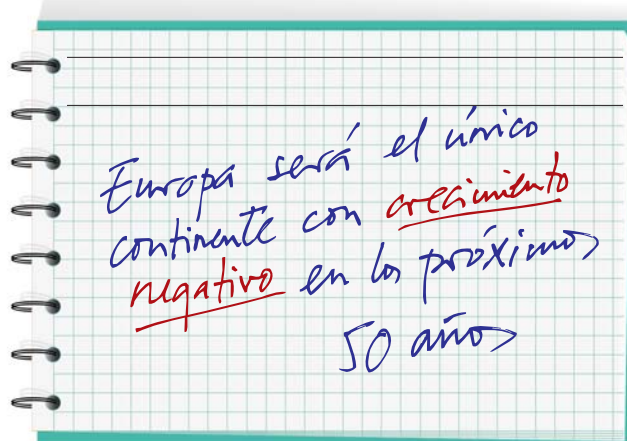 Europa será el único
continente con crecimiento
negativo en los próximos
50 años